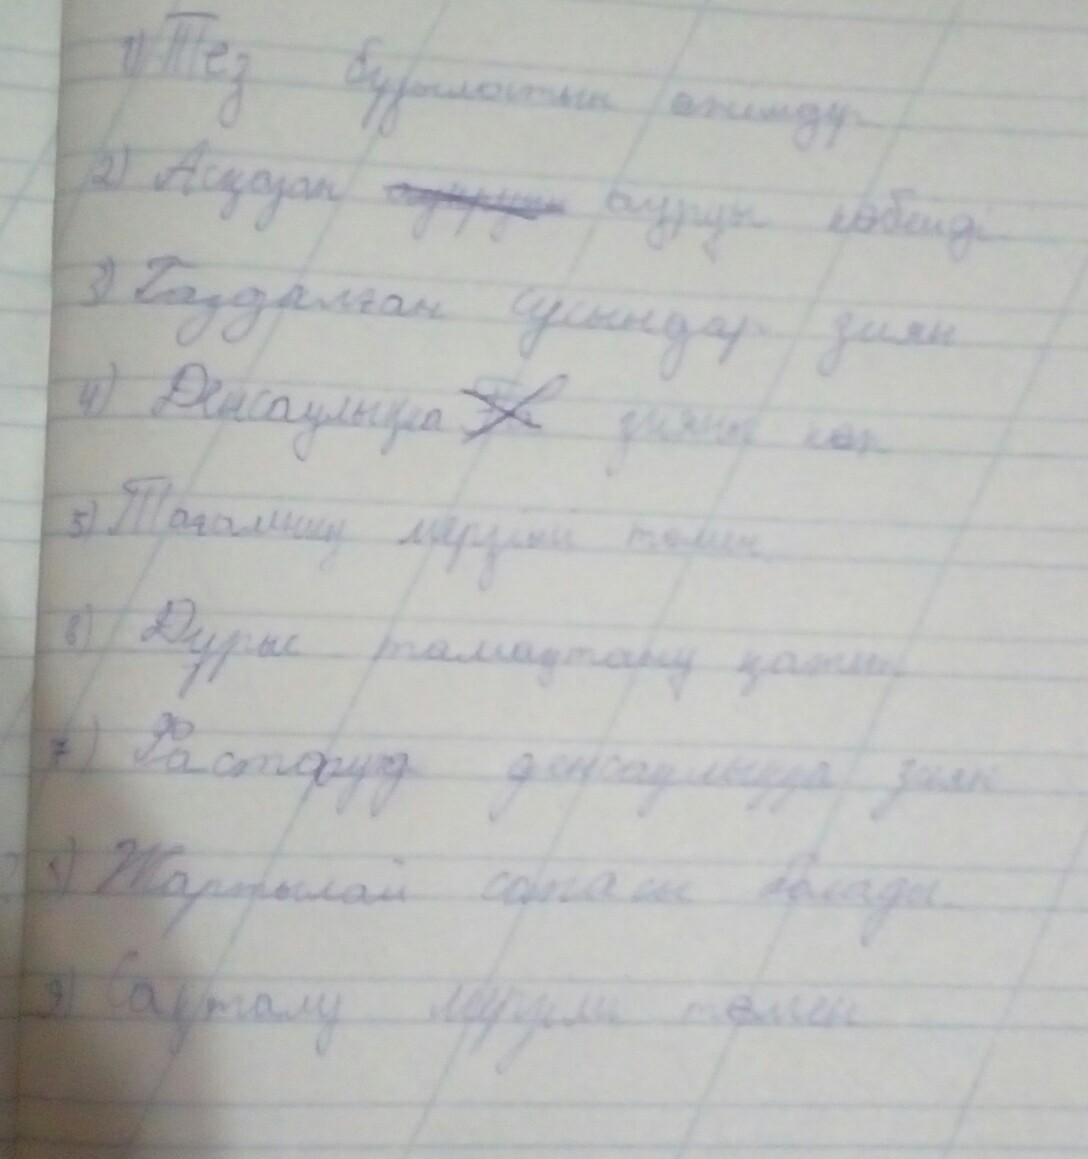 1) Тез бұзылатын өнімдер
2) Асқазан ауруы көбейді
3) Газдалған сусындар зиян
4) Денсаулыққа зияны көп
5) Тағамның мөлшері төмен
6) Дұрыс тамақтану қажет
7) Фастфуд денсаулыққа зиян
Жартылай сапасы болады
9) Сақталу мерзімі төмен